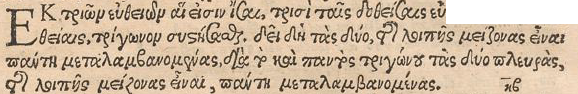 ΕΚ τριῶν εὐθειῶν αἵ εἰσιν ἴσαι, τρισὶ ταῖς δοθείσαις εὐ
θείαις, τρίγωνον συστήσασθαι. δεῖ δὴ τὰς δύο, τῆς λοιπῆς μείζονας εἶναι
πάντῃ μεταλαμβανομένας, διὰ τὸ καὶ παντὸς τριγώνου τὰς δύο πλευρὰς,
τῆς λοιπῆς μείζονας εἶναι, πάντῃ μεταλαμβανομένας. κβ